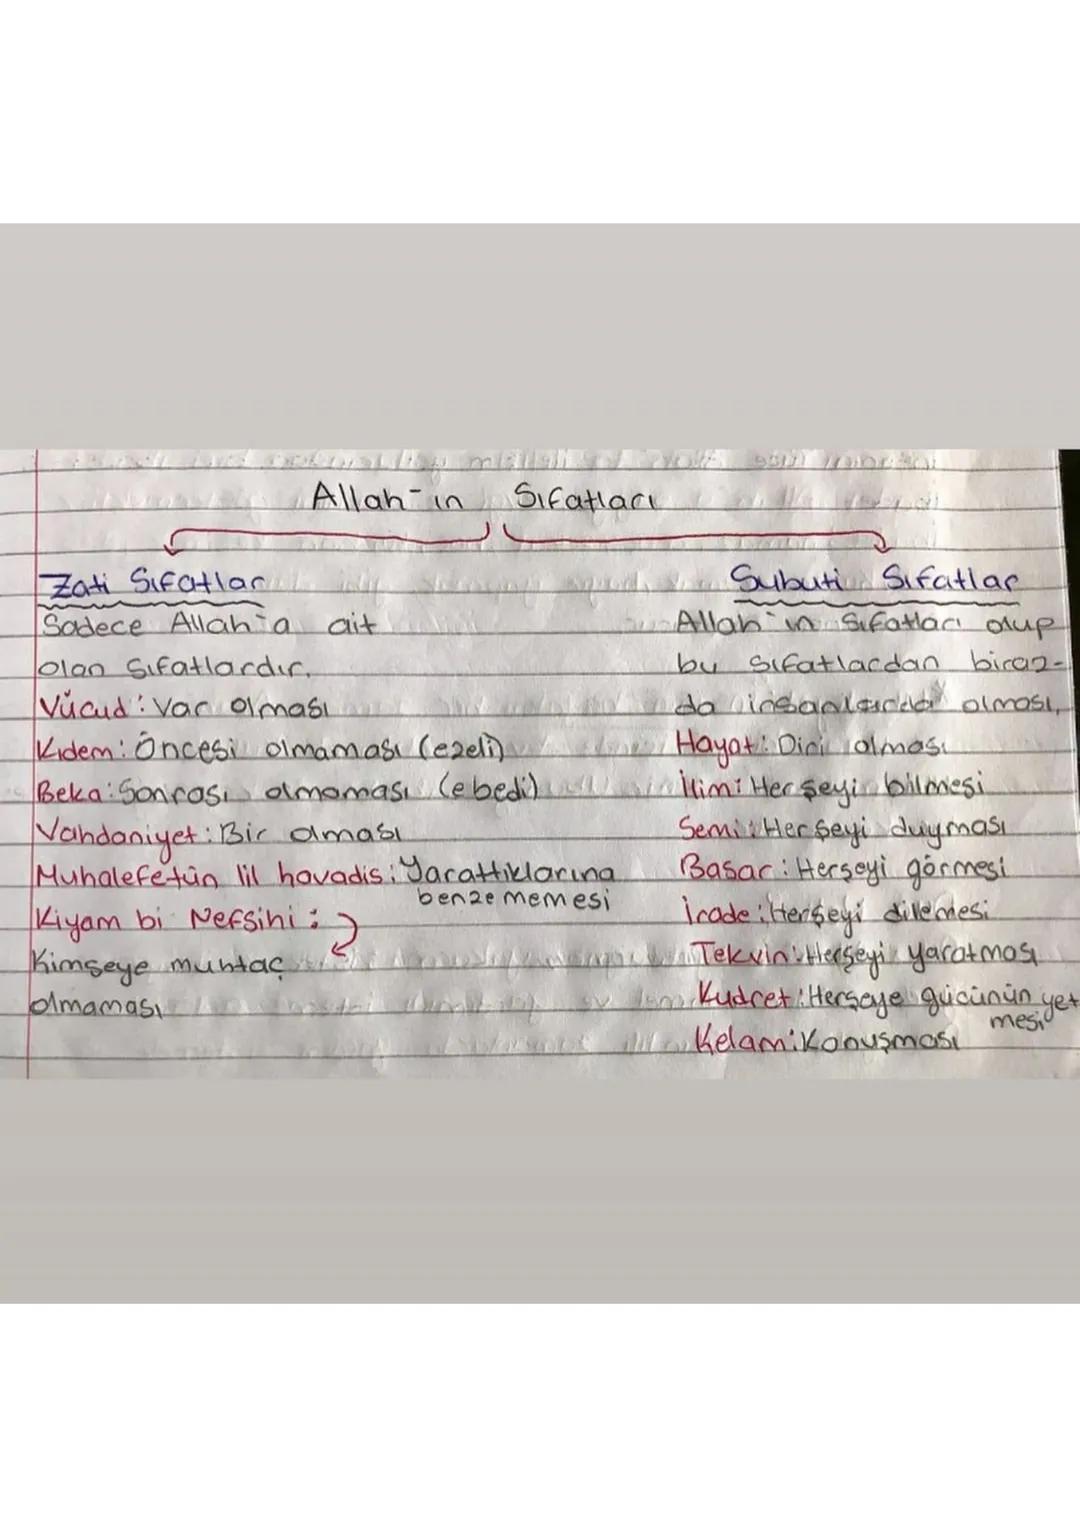 Allah-ın Sıfatları
Zati Sıfatlar
Sadece Allah-a ait
olan sıfatlardır.
Vücud: Var olması
Kıdem: Öncesi olmaması (ezeli)
Beka: Sonrası olmaması (ebedi)
Vahdaniyet: Bir olması
Muhalefetün lil havadis: Yarattıklarına
benzememesi
Kiyam bi Nefsihi:
Kimseye muhtaç
olmaması
Subuti Sıfatlar
Allah-ın sıfatları olup
bu sıfatlardan biraz-
da insanlarda olması,
Hayat: Diri olması
İlim: Her şeyi bilmesi
Semi: Her şeyi duyması
Basar: Herşeyi görmesi
İrade: Herşeyi dilemesi
Tekvin: Herşeyi yaratması
Kudret: Herşeye gücünün yet
mesi
Kelam: Konuşması